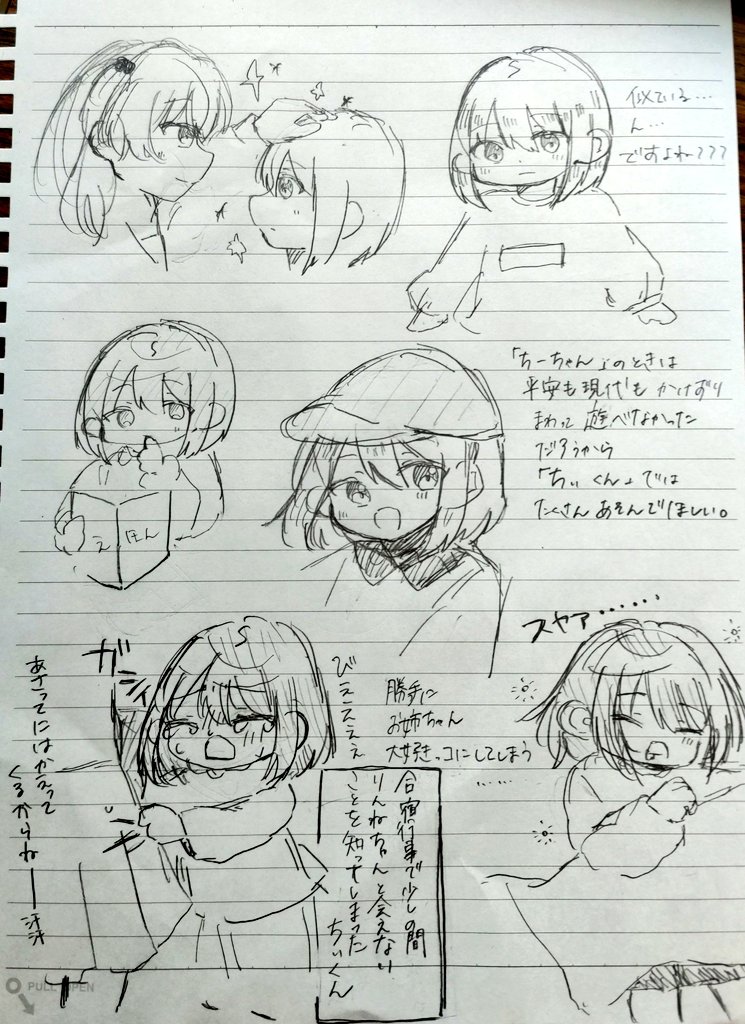 似ている…
ん…
ですよね???
「ちーちゃん」のときは
平安も現代もかけずり
まわって遊べなかった
だろうから
「ちぃくん」では
たくさんあそんでほしい。
え
ほん
スヤァ……
ガシィ
びえええぇ
勝手に
お姉ちゃん
大好きっコにしてしまう
……
あさってにはかえって
くるからねー汗汗
合宿行事で少しの間
りんねちゃんと会えない
ことを知ってしまった
ちぃくん
PULL OPEN